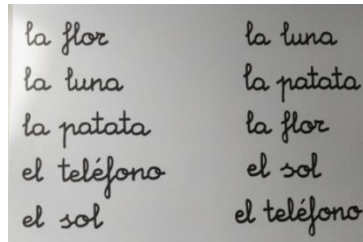 la flor
la luna
la patata
el teléfono
el sol
la luna
la patata
la flor
el sol
el teléfono